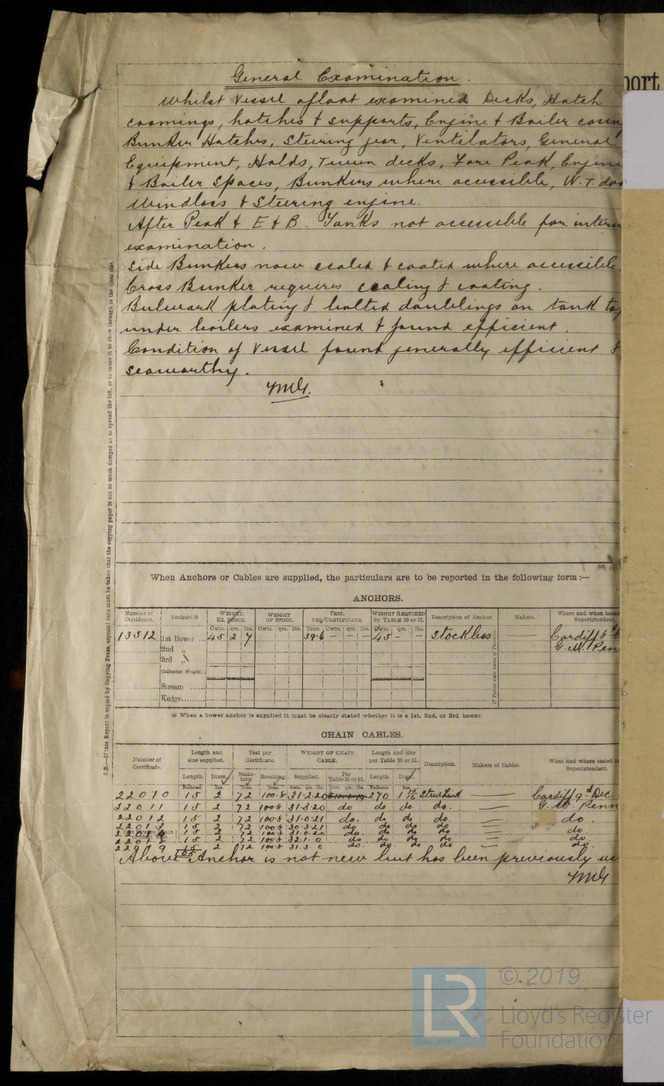 port
General Examination.
Whilst Vessel afloat examined Decks, Hatch
coamings, hatches & supports, Engine & Boiler casin
Bunker Hatches, Steering gear, Ventilators, General
Equipment, Holds, Tween decks, Fore Peak, Engine
& Boiler Spaces, Bunkers where accessible, W.T. doo
Windlass & Steering engine.
After Peak & E & B. Tanks not accessible for intern
examination.
Side Bunkers now scaled & coated where accessible.
Cross Bunker requires scaling & coating.
Bulwark plating & bolted doublings on tank top
under boilers examined & found efficient.
Condition of Vessel found generally efficient &
seaworthy.
When Anchors or Cables are supplied, the particulars are to be reported in the following form:—
ANCHORS.
Number of Certificate. Anchors.* WEIGHT, EX. STOCK. WEIGHT OF STOCK. TEST, PER CERTIFICATE. WEIGHT REQUIRED by TABLE 30 or 31. Description of Anchor. Makers. Where and when tested Superintendent.
Cwts. qrs. lbs. Cwts. qrs. lbs. Tons. cwts. qrs. lbs. Cwts. qrs. lbs.
13512 1st Bower .. 45 2 7 39 6 - - 45 - - Stockless — Cardiff
2nd G. W. Penn
3rd
Collective Weight.
Stream ......
Kedge........
* When a bower anchor is supplied it must be clearly stated whether it is a 1st, 2nd, or 3rd bower.
CHAIN CABLES.
Number of Certificate. Length and size supplied. Test per Certificate. WEIGHT OF CHAIN CABLE. Length and size per Table 30 or 31. Description. Makers of Cables. Where and when tested Superintendent.
Length. Diam. Statutory Breaking. Supplied. Per Table 30 or 31. Length. Diam.
22010 15 2 72 100·8 31·2·20 270 Stud Link — Cardiff 9th Dec.
22011 15 2 72 100·8 31·3·20 do do do do. — G. W. Penn
22012 15 2 72 100·8 31·0·21 do. do do do — do
22013 15 2 72 100·8 30·3·21 do do do do — do
15 2 72 100·8 31·0·20 do do do do — do
15 2 72 100·8 32·1·0 do do do do — do
15 2 72 100·8 31·3·0 do. do do do — do
Above Anchor is not new but has been previously us
N.B.—If this Report is copied by Copying Press, especial care must be taken that the copying paper is not so much damped as to spread the ink, or to cause it to show through to the other side.
LR
© 2019
Lloyd's Register
Foundation